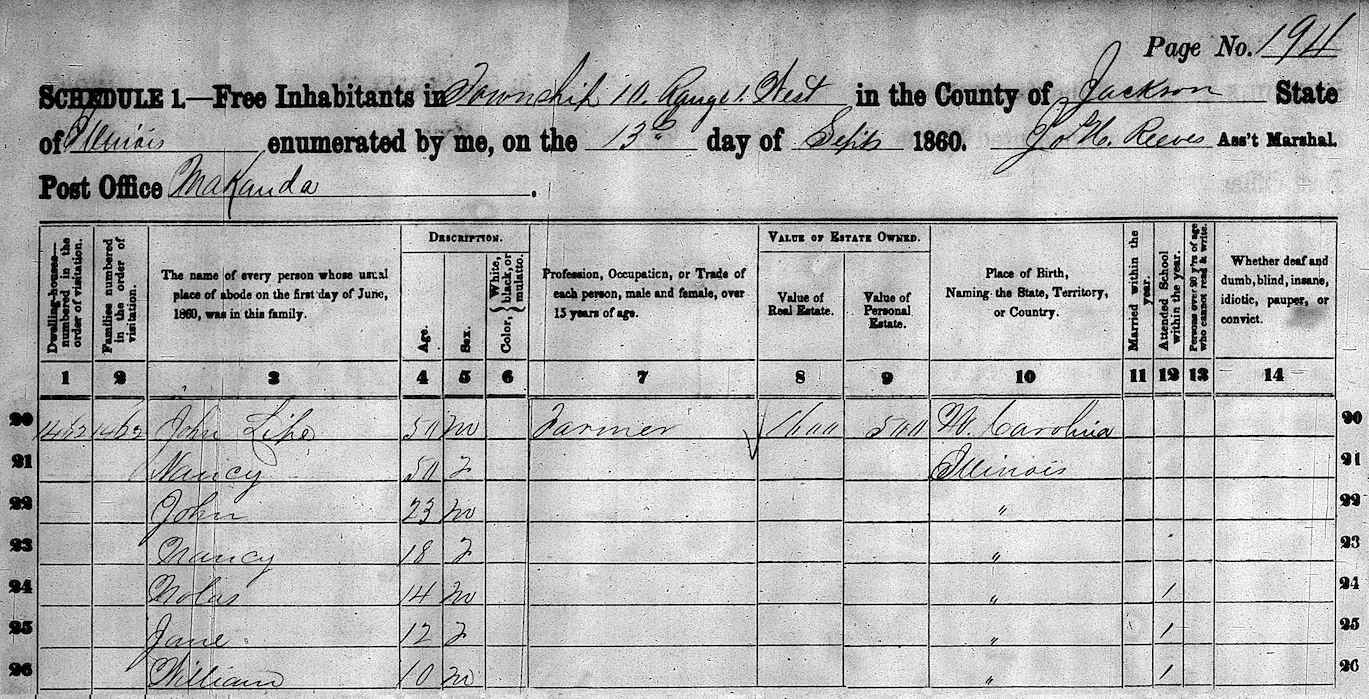 Page No. 194
SCHEDULE 1.—Free Inhabitants in Township 10. Range 1. West in the County of Jackson State
of Illinois enumerated by me, on the 13th day of Sept 1860. Jo H. Reeves Ass't Marshal.
Post Office Makanda .
Dwelling-houses—numbered in the order of visitation.
Families numbered in the order of visitation.
The name of every person whose usual place of abode on the first day of June, 1860, was in this family.
DESCRIPTION.
Age.
Sex.
Color, { White, black, or mulatto.
Profession, Occupation, or Trade of each person, male and female, over 15 years of age.
VALUE OF ESTATE OWNED.
Value of Real Estate.
Value of Personal Estate.
Place of Birth, Naming the State, Territory, or Country.
Married within the year.
Attended School within the year.
Persons over 20 y'rs of age who cannot read & write.
Whether deaf and dumb, blind, insane, idiotic, pauper, or convict.
1 2 3 4 5 6 7 8 9 10 11 12 13 14
20 John Lipe 50 m Farmer 500 N. Carolina 20
21 Nancy 50 f Illinois 21
22 John 23 m " 22
23 Nancy 18 f " 23
24 14 m " / 24
25 Jane 12 f " / 25
26 William 10 m " / 26